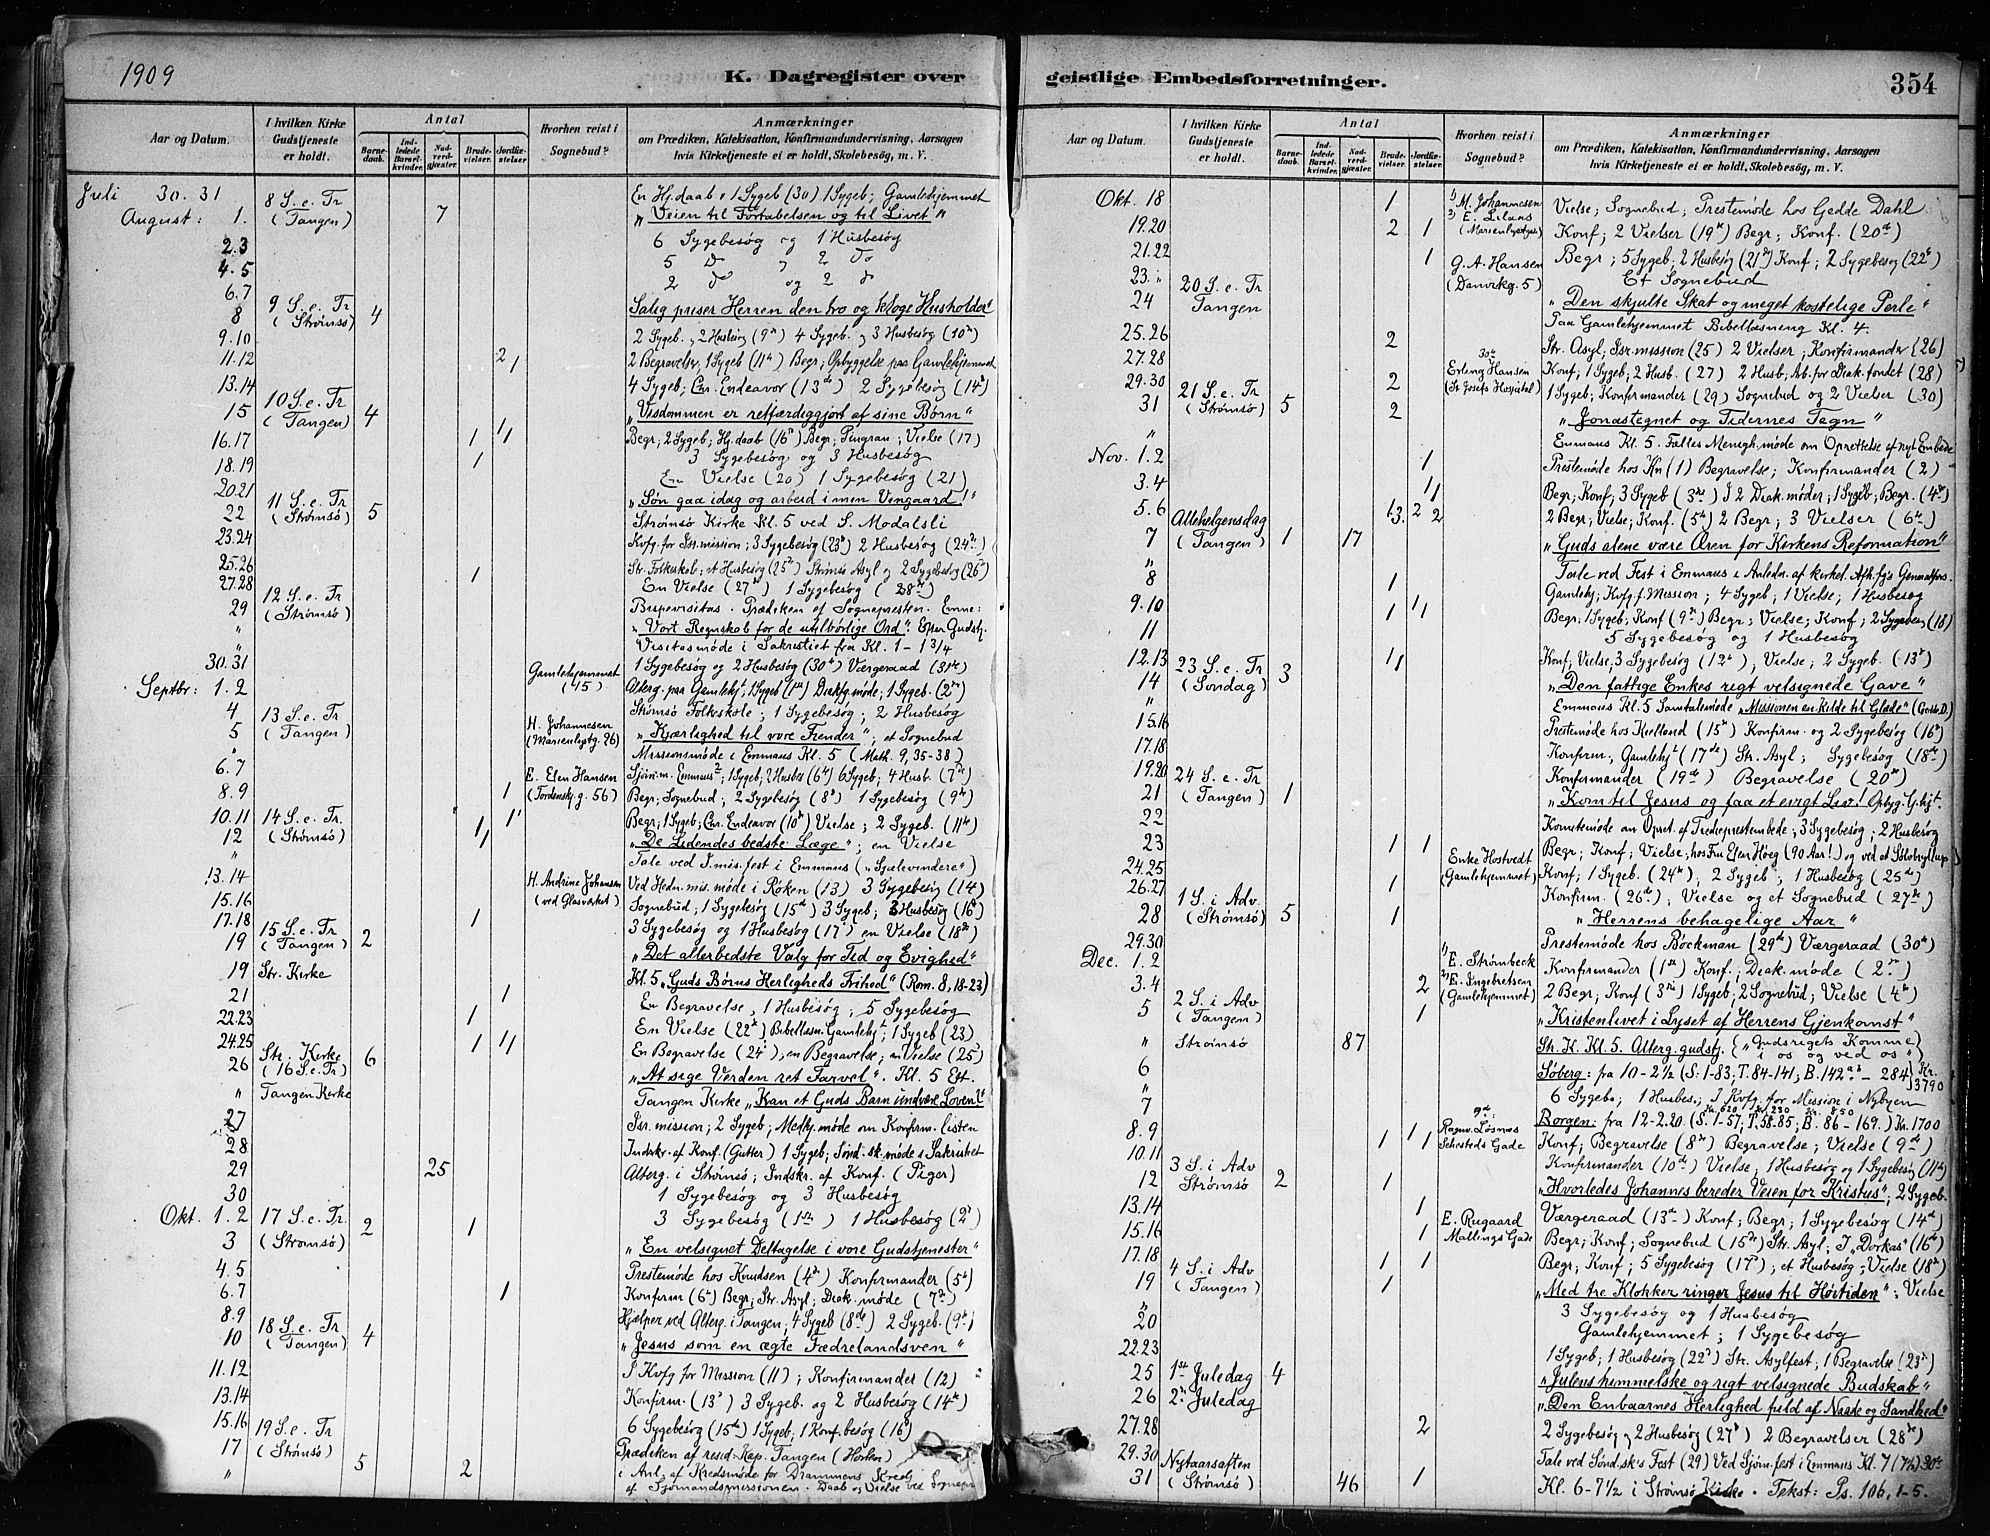 1909
K. Dagregister over
geistlige Embedsforretninger.
354
Aar og Datum.
I hvilken Kirke Gudstjeneste er holdt.
Antal
Barnedaab.
Indledede Barselkvinder.
Nadverdgjæster.
Brudevielser.
Jordfæstelser
Hvorhen reist i Sognebud?
Anmærkninger
om Prædiken, Katekisation, Konfirmandundervisning, Aarsagen
hvis Kirketjeneste ei er holdt, Skolebesøg, m. V.
Juli 30. 31 8 S. e. Tr En Hj.daab 1 Sygeb (30) 1 Sygeb; Gamlehjemmet
August: 1. (Tangen) 7 "Veien til Fortabelsen og til Livet"
2.3 6 Sygebesøg og 1 Husbesøg
4.5 5 Do 2 Do
6.7 9 S. e. Tr 2 Do og 2 d
8 (Strømsø) 4 Salig priser Herren den tro og kloge Husholder
9.10 2 Sygeb. 2 Husbesøg (9de) 4 Sygeb. 3 Husbesøg (10de)
11.12 2 1 2 Begravelser, 1 Sygeb (11te) Begr; Opbyggelse paa Gamlehjemmet
13.14 10 S. e. Tr 4 Sygeb; Chr. Endeavor (13de) 2 Sygebesøg (14de)
15 (Tangen) 4 "Visdommen er retfærdiggjort af sine Børn"
16.17 1 1/1 Begr; 2 Sygeb; Hj.daab (16de) Begr; Vielse (17)
18.19 1 3 Sygebesøg og 3 Husbesøg
20.21 11 S. e. Tr En Vielse (20) 1 Sygebesøg (21)
22 (Strømsø) 5 "Søn gaa idag og arbeid i min Vingaard!"
23.24 Strømsø Kirke Kl. 5 ved S. Modalsli
25.26 Kvfg. for Isr. mission; 3 Sygebesøg (23de) 2 Husbesøg (24de)
27.28 1 Str. Folkeskole; et Husbesøg (25de) Strømsø Asyl og 2 Sygebesøg (26de)
12 S. e. Tr En Vielse (27de) 1 Sygebesøg (28de)
29 (Strømsø) Bispevisitas. Prædiken af Sognepresten. Emne:
" "Vort Regnskab for de utilbørlige Ord". Efter Gudstj.
" Visitasmøde i Sakristiet fra Kl. 1 - 1 3/4
30.31 Gamlehjemmet 1 Sygebesøg og 2 Husbesøg (30te) Værgeraad (31te)
Septbr: 1.2 (45) Alterg. paa Gamlehj., 1 Sygeb (1ste) Diakfg. møde; 1 Sygeb. (2den)
4 13 S. e. Tr Strømsø Folkeskole; 1 Sygebesøg; 2 Husbesøg
5 (Tangen) H. Johannesen (Marienlystg. 26) "Kjærlighed til vore Fiender"; et Sognebud
" Missionsmøde i Emmaus Kl. 5 (Math. 9, 35-38)
6.7 E. Elen Hansen Emmaus; 1 Sygeb, 2 Husbes (6te) 6 Sygeb; 4 Husb. (7de)
8.9 1 (Tordenskj. g. 56) Begr; Sognebud; 2 Sygebesøg (8de) 1 Sygebesøg (9de)
10.11 14 S. e. Tr 1 Begr; 1 Sygeb; Chr. Endeavor (10de) Vielse; 2 Sygeb. (11te)
12 (Strømsø) 1/1 "De Lidendes bedste Læge"; en Vielse
" Tale ved I.mis.fest i Emmaus ("Sjælevindere")
13.14 H. Andrine Johansen Ved Hedn. mis. møde i Røken (13) 3 Sygebesøg (14)
15.16 (ved Glasværket) Sognebud; 1 Sygebesøg (15de) 3 Sygeb; 3 Husbesøg (16de)
17.18 15 S. e. Tr 1 3 Sygebesøg og 1 Husbesøg (17de) en Vielse (18de)
19 (Tangen) 2 "Det allerbedste Valg for Tid og Evighed"
19 Str. Kirke Kl. 5 "Guds Børns Herligheds Frihed" (Rom. 8, 18-23)
21 1 En Begravelse, 1 Husbesøg; 5 Sygebesøg
22.23 1 En Vielse (22de) Bibellæsn. Gamlehjt; 1 Sygeb (23)
24.25 Str. Kirke 1 1/1 En Begravelse (24de), en Begravelse; en Vielse (25)
26 (16 S.e.Tr) 6 "At sige Verden ret Farvel". Kl. 5 Eft.
" Tangen Kirke Tangen Kirke "Kan et Guds Barn undvære Loven?"
27 Isr. mission; 2 Sygeb; Medhj. møde om Konfirm. listen
28 Indskr. af Konf. (Gutter) 1 Sygeb; Sønd.sk.møde i Sakristiet
29 25 Alterg. i Strømsø; Indskr. af Konf. (Piger)
30 1 Sygebesøg og 3 Husbesøg
Okt. 1.2 17 S. e. Tr. 3 Sygebesøg (1ste) 1 Husbesøg (2)
3 (Strømsø) 2 1 "En velsignet Deltagelse i vore Gudstjenester"
4.5 Prestemøde hos Knudsen (4de) Konfirmander (5te)
6.7 1 Konfirm (6te) Begr; Str. Asyl; Diak. møde (7de)
8.9 18 S. e. Tr Hjælper ved Alterg. i Tangen; 4 Sygeb (8de) 2 Sygeb. (9de)
10 (Tangen) 4 "Jesus som en ægte Fædrelandsven"
11.12 I Kvfg for Mission (11); Konfirmander (12)
13.14 Konfirm. (13de) 3 Sygeb. og 2 Husbesøg (14de)
15.16 19 S. e. Tr 6 Sygebesøg (15de) 1 Sygeb; 1 Konf.besøg (16)
17 (Strømsø) Prædiken af resid. Kap. Tangen (Horten)
" 5 2 i Anl. af Kredsmøde for Drammens Kreds
af Sjømandsmissionen. Daab og Vielse ved Sognepr
Aar og Datum.
I hvilken Kirke Gudstjeneste er holdt.
Antal
Barnedaab.
Indledede Barselkvinder.
Nadverdgjæster.
Brudevielser.
Jordfæstelser.
Hvorhen reist i Sognebud?
Anmærkninger
om Prædiken, Katekisation, Konfirmandundervisning, Aarsagen
hvis Kirketjeneste ei er holdt, Skolebesøg, m. V.
Okt. 18 1 1) M. Johannesen Vielse; Sognebud; Prestemøde hos Gedde Dahl
19.20 2 1 2) E. Erlans (Marienlyst) Konf; 2 Vielser (19de) Begr; Konf. (20de)
21.22 1 G. A. Hansen Begr; 5 Sygeb; 2 Husbesøg (21de) Konf; 2 Sygebesøg (22de)
23. " 20 S. e. Tr (Danvikg. 5) Et Sognebud
24 Tangen "Den skjulte Skat og meget kostelige Perle"
Paa Gamlehjemmet Bibellæsning Kl. 4.
25.26 2 Str. Asyl; Isr. mission (25) 2 Vielser; Konfirmander (26)
27.28 30te Erling Hansen Konf; 1 Sygeb; 2 Husb. (27) 2 Husb; Arb. for Diak. fondet (28)
29.30 21 S. e. Tr 2 (St. Josefs Hospital) 1 Sygeb; Konfirmander (29) Sognebud og 2 Vielser (30)
31 (Strømsø) 5 2 "Jonastegnet og Tidernes Tegn"
" Emmaus Kl. 5. Fælles Menigh.møde om Oprettelse af nyt Embede
Nov. 1.2 1 Prestemøde hos Kn (1) Begravelse; Konfirmander (2)
3.4 1/1 Begr; Konf; 3 Sygeb (3die) I 2 Diak.møder; 1 Sygeb; Begr. (4de)
5.6 Allehelgensdag 1 3. 2 2 2 Begr; Vielse; Konf. (5te) 2 Begr; 3 Vielser (6te)
7 (Tangen) 1 17 "Guds alene være Æren for Kirkens Reformation"
" Tale ved Fest i Emmaus i Anledn. af kirkel.
8 1 Gamlehj; Kvfg. f. Mission; 4 Sygeb; 1 Vielse; 1 Husbesøg
9.10 1 1/1 Begr; 1 Sygeb; Konf (9de) Begr; Vielse; Konf; 2 Sygebes (10)
11 5 Sygebesøg og 1 Husbesøg
12.13 23 S. e. Tr 1/1 Konf; Vielse; 3 Sygebesøg (12te); Vielse; 2 Sygeb. (13de)
14 (Søndag) 3 "Den fattige Enkes rigt velsignede Gave"
" Emmaus Kl. 5 Samtalemøde "Missionen en Kilde til Glæde"
15.16 Prestemøde hos Kielland (15de) Konfirm. og 2 Sygebesøg (16de)
17.18 Konfirm; Gamlehjt (17de) Str. Asyl; Sygebesøg (18de)
19.20 24 S. e. Tr Konfirmander (19de) Begravelse (20de)
21 (Tangen) 1 "Kom til Jesus og faa et evigt Liv! Opbyg. G.hjt.
22 Komitemøde om Opret. af Tredieprestembede; 3 Sygebesøg; 2 Husbesøg
23 1 1 Begr; Konf; Vielse; hos Fru Elen Høeg (90 Aar!) og ved et Sølvbryllup
24.25 Enke Hostvedt Konf; 1 Sygeb. (24de); 2 Sygeb; 1 Husbesøg (25de)
26.27 1 S. i Adv. 1 (Gamlehjemmet) Konfirm. (26de); Vielse og et Sognebud (27de)
28 (Strømsø) 5 1 "Herrens behagelige Aar"
29.30 Prestemøde hos Bøckman (29de) Værgeraad (30te)
Dec. 1.2 1) E. Strømbeck Konfirmander (1ste) Konf. Diak. møde (2den)
3.4 2 S. i Adv 2 2) E. Ingebretsen (Gamlehjemmet) 2 Begr; Konf (3die) 1 Sygeb; 2 Sognebud; Vielse (4de)
5 (Tangen) 1 "Kristenlivet i Lyset af Herrens Gjenkomst"
" Strømsø 87 Str. K. Kl. 5. Alterg. gudstj. ("Gudsrigets Komme i os og ved os")
6 Søberg: fra 10-2½ (S. 1-83; T. 84-141; B. 142ab - 284) Kr. 3790
" 6 Sygeb; 1 Husbes.; I Kvfg. for Mission i Nybyen
7 9de: Borgen: fra 12-2.20. (S. 1-57; T. 58-85; B. 86-169.) Kr. 1700
8.9 1 1/1 Ragnv. Løsnes Konf; Begravelse (8de) Begravelse; Vielse (9de)
10.11 3 S. i Adv Sehesteds Gade Konfirmander (10de) Vielse; 1 Husbesøg og 1 Sygebesøg (11te)
12 Strømsø 2 1 "Hvorledes Johannes bereder Veien for Kristus"; 2 Sygeb.
13.14 1 E. Rugaard Værgeraad (13de) Konf; Begr; 1 Sygebesøg (14de)
15.16 1 Mallings Gade Begr; Konf; Sognebud (15de) Str. Asyl; I "Dorkas" (16de)
17.18 4 S. i Adv 1 1 Begr; Konf; 5 Sygebesøg (17de); et Husbesøg; Vielse (18de)
19 (Tangen) 1 "Med tre Klokker ringer Jesus til Høitiden"; Vielse
" 3 Sygebesøg og 1 Husbesøg
20 Gamlehjemmet; 1 Sygebesøg
22.23 1 Sygeb; 1 Husbesøg (22de) Str. Asylfest; 1 Begravelse (23de)
25 1ste Juledag 4 "Julens himmelske og rigt velsignede Budskab"
26 2den Juledag "Den Enbaarnes Herlighed fuld af Naade og Sandhed"
27.28 2 2 Sygebesøg 2 Husbesøg (27de) 2 Begravelser (28de)
29.30 Nytaarsaften Tale ved Sønd.sk's Fest (29) Ved Sjøm.fest i Emmaus Kl. 7 (7½) 30te
31 (Strømsø) 46 1 Kl. 6-7½ i Strømsø Kirke. Tekst: Ps. 106, 1-5.